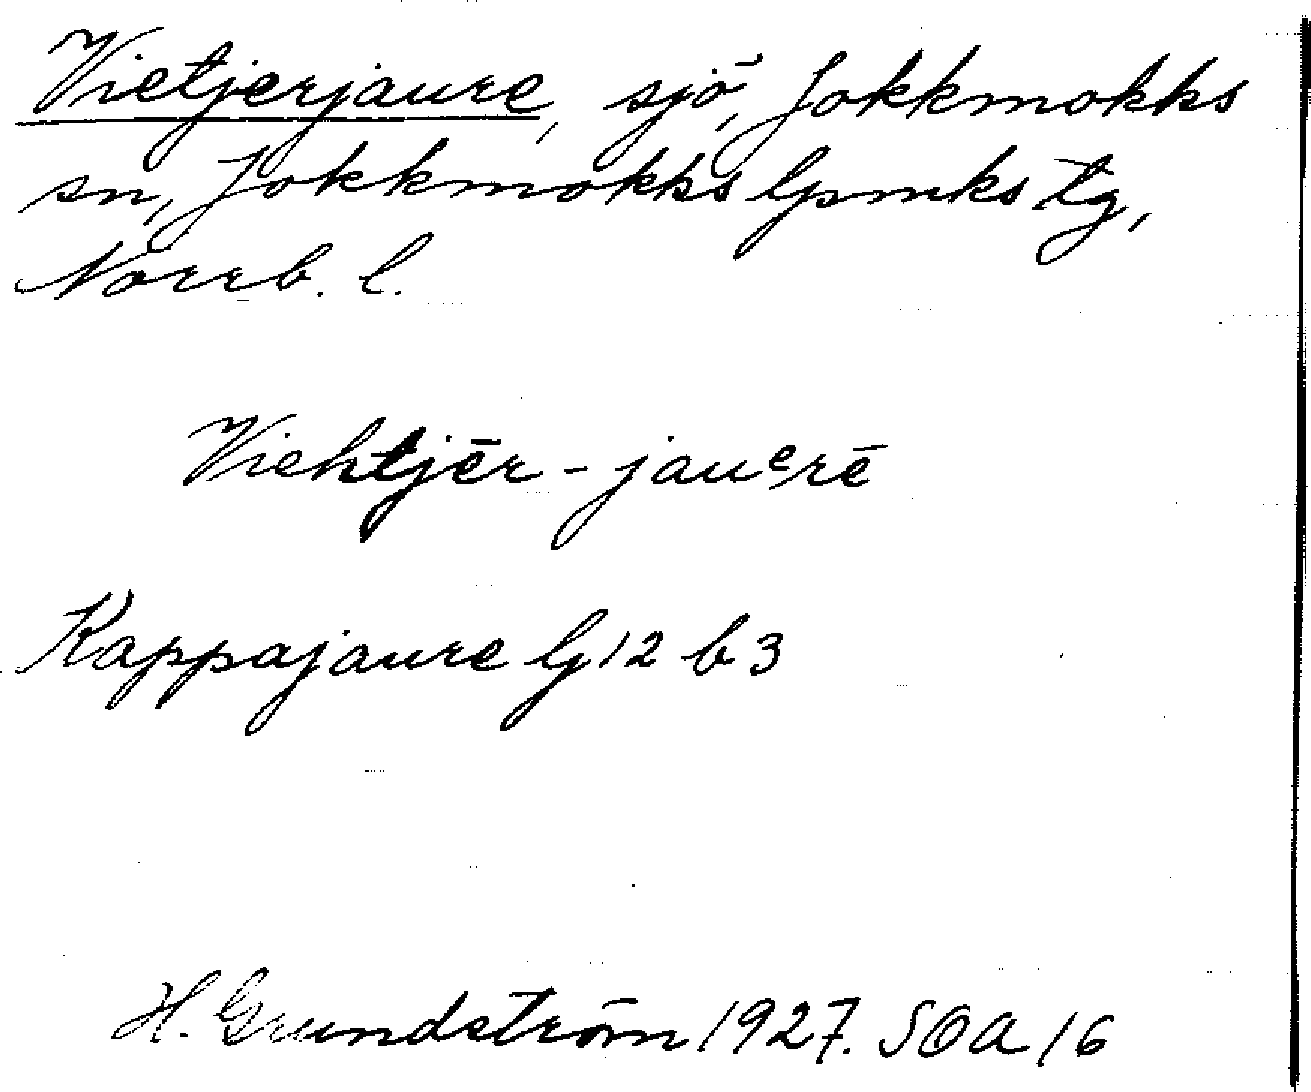 Vietjerjaure, sjö, Jokkmokks
sn, Jokkmokks lpmks tg,
Norrb. l.
Viehtjēr-jauᵉrē
Kappajaure G 12 b 3
H. Grundström 1927. SOA 16